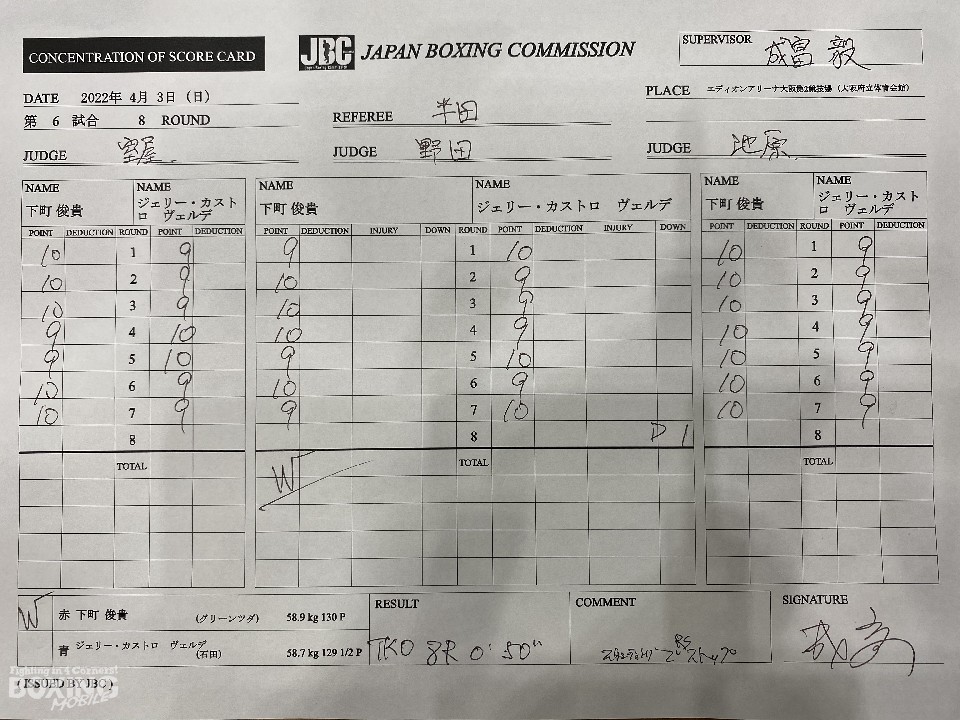 CONCENTRATION OF SCORE CARD
JBC JAPAN BOXING COMMISSION
SUPERVISOR 成富 毅
DATE 2022年 4月 3日 (日)
PLACE エディオンアリーナ大阪第2競技場 (大阪府立体育会館)
第 6 試合 8 ROUND
REFEREE 半田
JUDGE 室屋
JUDGE 野田
JUDGE 池原
NAME NAME NAME NAME NAME NAME
下町 俊貴 ジェリー・カストロ ヴェルデ 下町 俊貴 ジェリー・カストロ ヴェルデ 下町 俊貴 ジェリー・カストロ ヴェルデ
POINT DEDUCTION ROUND POINT DEDUCTION POINT DEDUCTION INJURY DOWN ROUND POINT DEDUCTION INJURY DOWN POINT DEDUCTION ROUND POINT DEDUCTION
10 1 9 9 1 10 10 1 9
10 2 9 10 2 9 10 2 9
10 3 9 10 3 9 10 3 9
9 4 10 10 4 9 10 4 9
9 5 10 9 5 10 10 5 9
10 6 9 10 6 9 10 6 9
10 7 9 9 7 10 10 7 9
8 8 D 1 8
TOTAL W TOTAL TOTAL
W 赤 下町 俊貴 (グリーンツダ) 58.9 kg 130 P
青 ジェリー・カストロ ヴェルデ (石田) 58.7 kg 129 1/2 P
RESULT
TKO 8R 0' 50"
COMMENT
RS
ストップ
SIGNATURE
(ISSUED BY JBC)
Fighting in 4 Corners!
BOXING
MOBILE